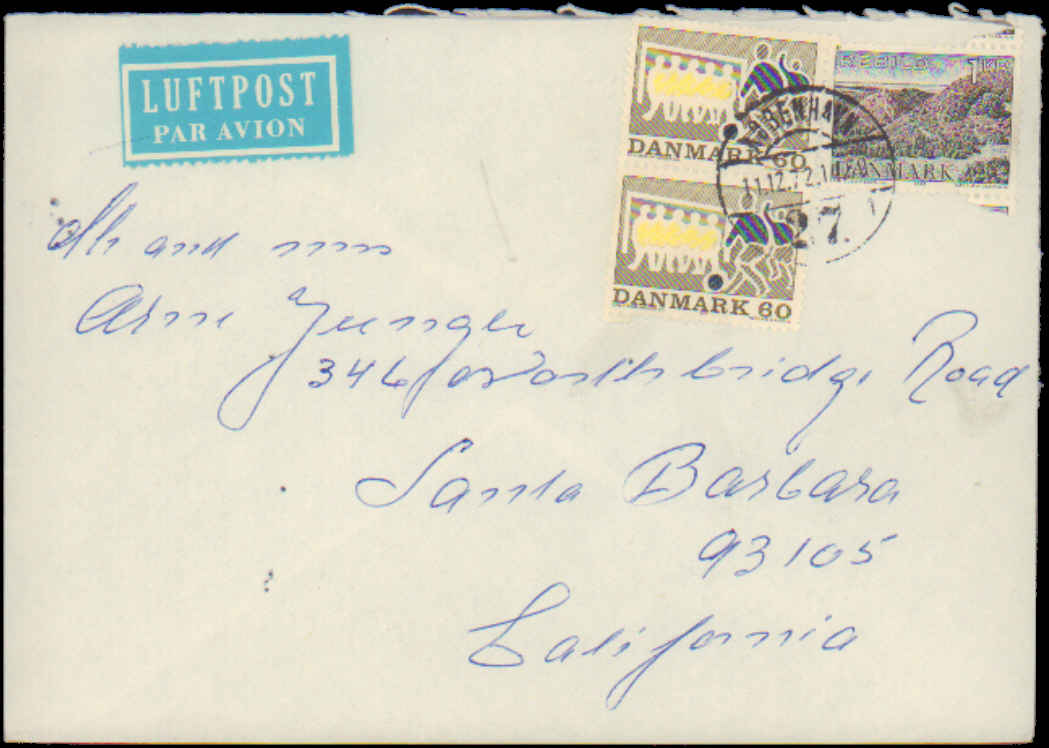 LUFTPOST
PAR AVION
DANMARK 60
DANMARK 60
REBILD 1 KR
DANMARK
KØBENHAVN
11.12.72.1
27.
Mr and mrs
Arne Junger
346 Northbridge Road
Santa Barbara
93105
California